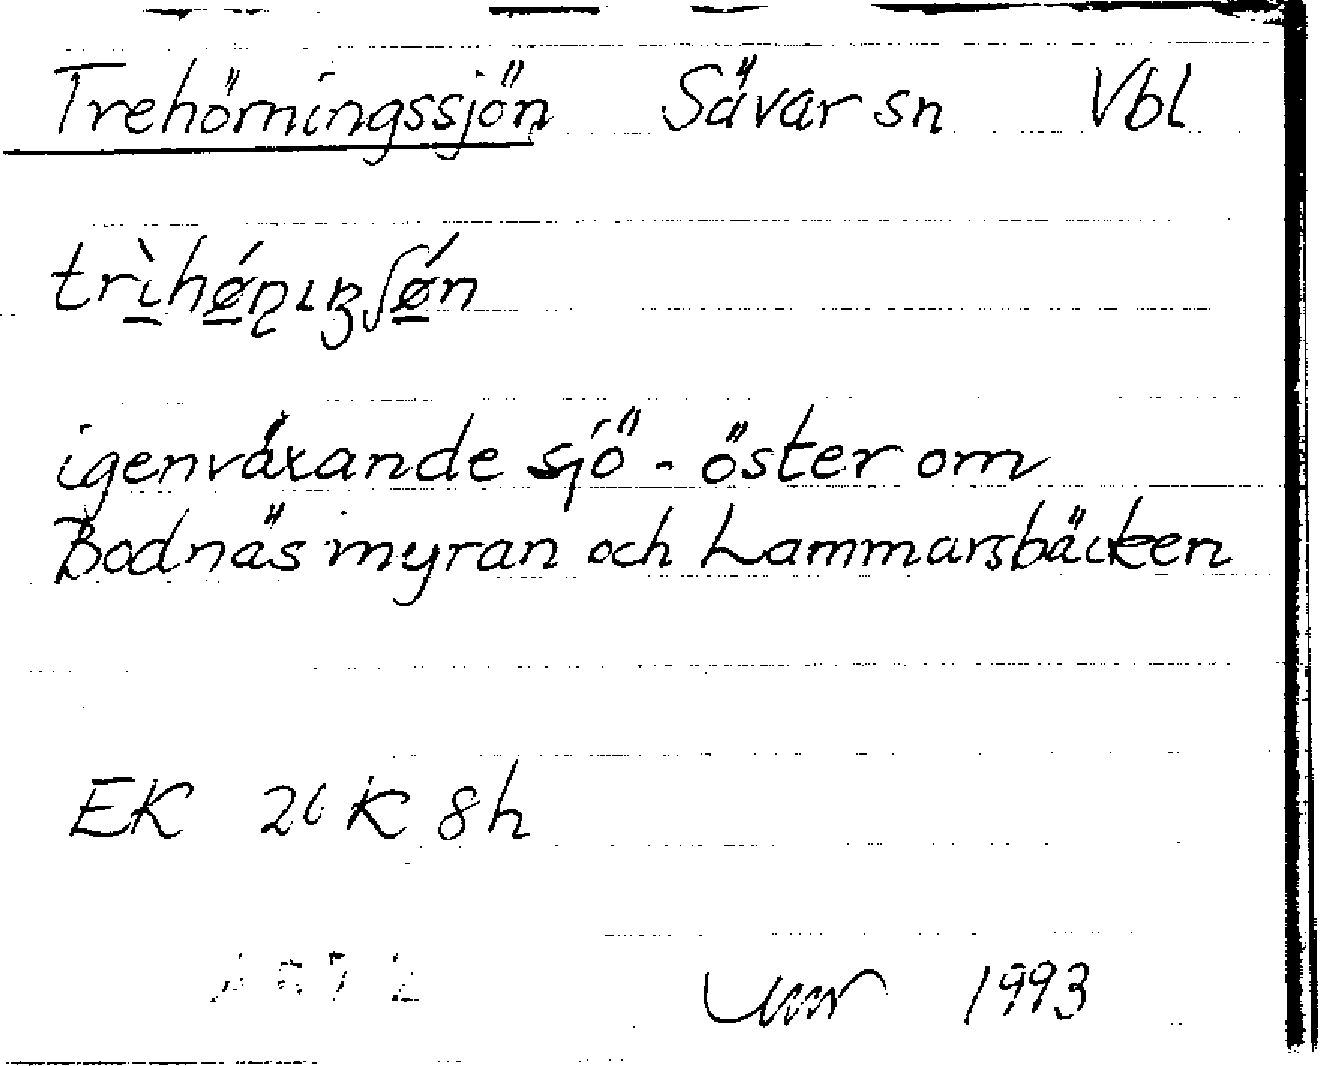 Trehörningssjön Sävar sn Vbl
trìhǿɳɩꞑʃǿn
igenväxande sjö - öster om
Bodnäsmyran och Lammarsbäcken
EK 20K 8h
1993